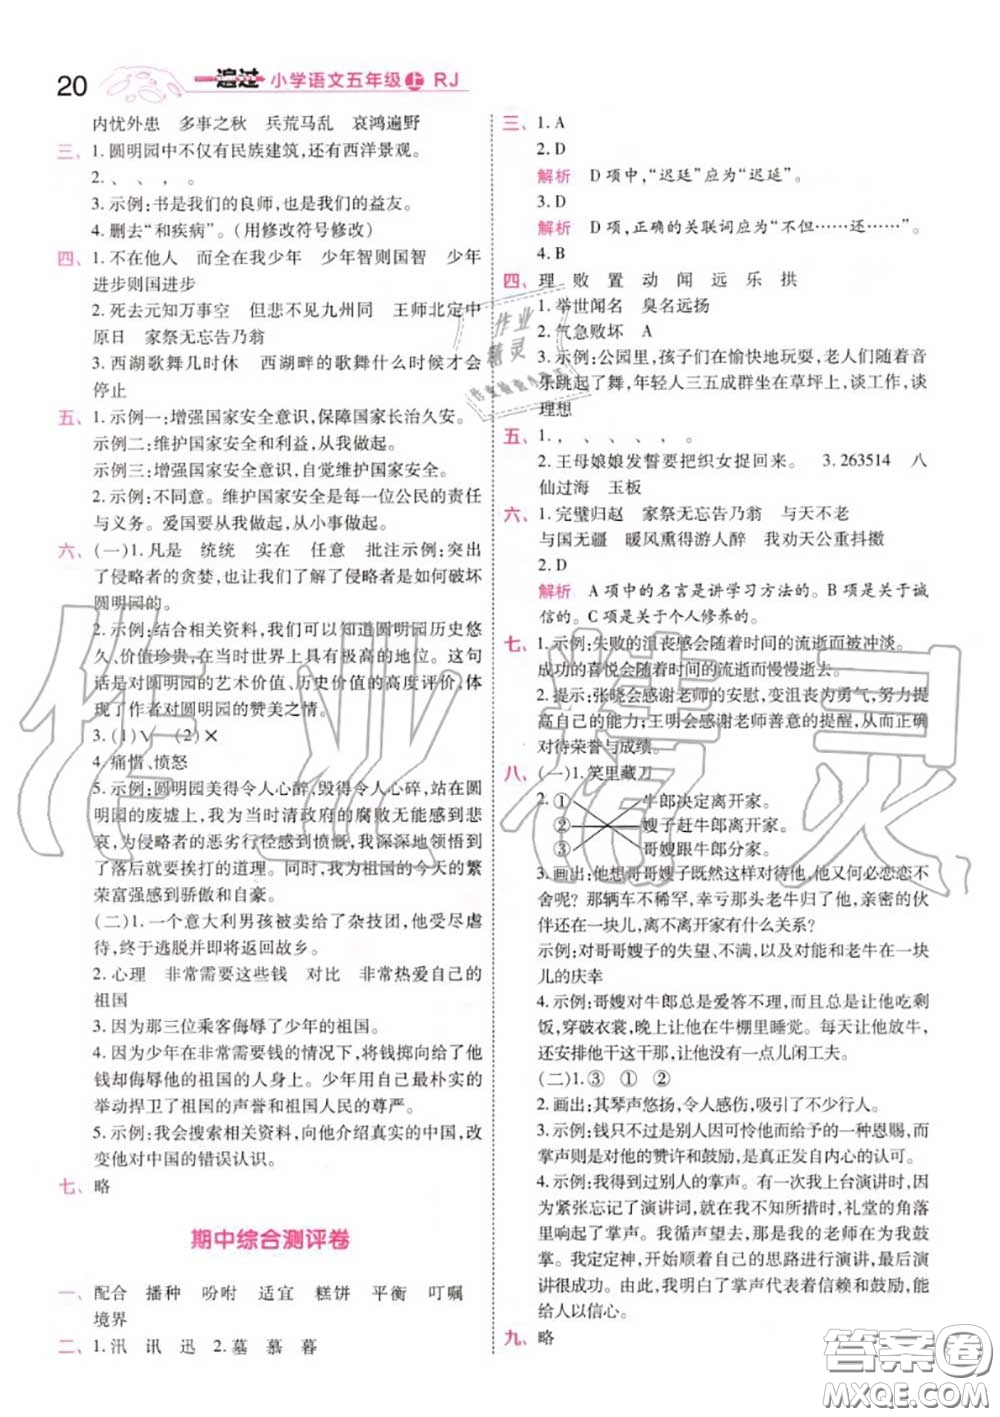 20 一遍过 小学语文五年级 上 RJ
内忧外患 多事之秋 兵荒马乱 哀鸿遍野
三、1. 圆明园中不仅有民族建筑,还有西洋景观。
2. 、 、 , 。
3. 示例:书是我们的良师,也是我们的益友。
4. 删去“和疾病”。(用修改符号修改)
四、1. 不在他人 而全在我少年 少年智则国智 少年
进步则国进步
2. 死去元知万事空 但悲不见九州同 王师北定中
原日 家祭无忘告乃翁
3. 西湖歌舞几时休 西湖畔的歌舞什么时候才会
停止
五、1. 示例一:增强国家安全意识,保障国家长治久安。
示例二:维护国家安全和利益,从我做起。
示例三:增强国家安全意识,自觉维护国家安全。
2. 示例:不同意。维护国家安全是每一位公民的责任
与义务。爱国要从我做起,从小事做起。
六、(一)1. 凡是 统统 实在 任意 批注示例:突出
了侵略者的贪婪,也让我们了解了侵略者是如何破坏
圆明园的。
2. 示例:结合相关资料,我们可以知道圆明园历史悠
久、价值珍贵,在当时世界上具有极高的地位。这句
话是对圆明园的艺术价值、历史价值的高度评价,体
现了作者对圆明园的赞美之情。
3. (1)√ (2)×
4. 痛惜、愤怒
5. 示例:圆明园美得令人心醉,毁得令人心碎,站在圆
明园的废墟上,我为当时清政府的腐败无能感到悲
哀,为侵略者的恶劣行径感到愤慨,我深深地领悟到
了落后就要挨打的道理。同时,我为祖国的今天的繁
荣富强感到骄傲和自豪。
(二)1. 一个意大利男孩被卖给了杂技团,他受尽虐
待,终于逃脱并即将返回故乡。
2. 心理 非常需要这些钱 对比 非常热爱自己的
祖国
3. 因为那三位乘客侮辱了少年的祖国。
4. 因为少年在非常需要钱的情况下,将钱掷向给他
钱却侮辱他的祖国的人身上。少年用自己最朴实的
举动捍卫了祖国的声誉和祖国人民的尊严。
5. 示例:我会搜索相关资料,向他介绍真实的中国,改
变他对中国的错误认识。
七、略
期中综合测评卷
一、配合 播种 吩咐 适宜 糕饼 平衡 叮嘱
境界
二、1. 汛 讯 迅 2. 墓 慕 暮
三、1. A
2. D
解析 D项中,“迟廷”应为“迟延”。
3. D
解析 D项,正确的关联词应为“不但……还……”。
4. B
四、理 败 置 动 闻 远 乐 拱
1. 举世闻名 臭名远扬
2. 气急败坏 A
3. 示例:公园里,孩子们在愉快地玩耍,老人们随着音
乐跳起了舞,年轻人三五成群坐在草坪上,谈工作,谈
理想
五、1. , 、 、 , 。
2. 王母娘娘发誓要把织女捉回来。 3. 263514 八
仙过海 玉板
六、1. 完璧归赵 家祭无忘告乃翁 与天不老
与国无疆 暖风熏得游人醉 我劝天公重抖擞
2. D
解析 A项中的名言是讲学习方法的。B项是关于诚
信的。C项是关于个人修养的。
七、1. 示例:失败的沮丧感会随着时间的流逝而被冲淡。
成功的喜悦会随着时间的流逝而慢慢逝去。
2. 提示:张晓会感谢老师的安慰,变沮丧为勇气,努力提
高自己的能力;王明会感谢老师善意的提醒,从而正确
对待荣誉与成绩。
八、(一)1. 笑里藏刀
2. ① 牛郎决定离开家。
② 嫂子赶牛郎离开家。
③ 哥嫂跟牛郎分家。
3. 画出:他想哥哥嫂子既然这样对待他,他又何必恋恋不
舍呢?那辆车不稀罕,幸亏那头老牛归了他,亲密的伙
伴还在一块儿,离不离开家有什么关系?
示例:对哥哥嫂子的失望、不满,以及对能和老牛在一块
儿的庆幸
4. 示例:哥嫂对牛郎总是爱答不理,而且总是让他吃剩
饭,穿破衣裳,晚上让他在牛棚里睡觉。每天让他做这,
安排他干这干那,让他没有一点儿闲工夫。
(二)1. ③ ① ②
2. 画出:其琴声悠扬,令人感伤,吸引了不少行人。
3. 示例:钱只不过是别人因可怜他而给予的一种恩赐,而
掌声则是对他的赞许和鼓励,是真正发自内心的认可。
4. 示例:我得到过别人的掌声。有一次我上台演讲时,因
为紧张忘记了演讲词,就在我不知所措时,礼堂的角落
里响起了掌声。我循声望去,为我的老师在为我鼓
掌。我定定神,开始按照自己的思路进行演讲,最后演
讲很成功。由此,我明白了掌声代表着信赖和鼓励,能
给人以信心。
九、略
作业精灵
作业精灵
答案卷
MXQE.COM